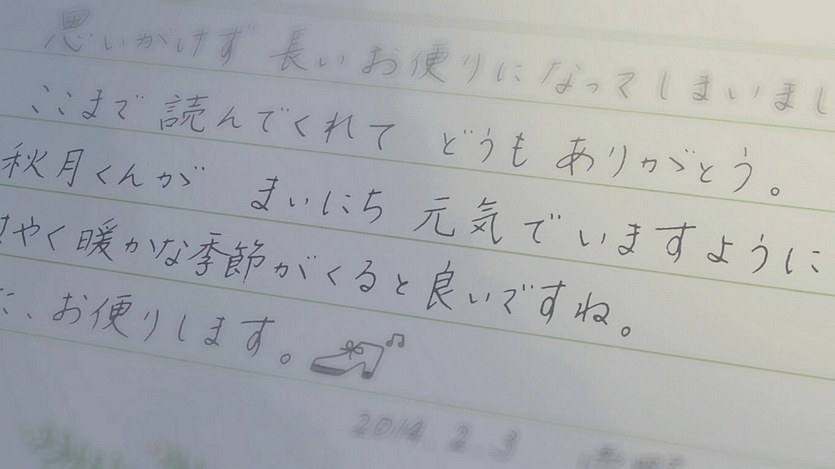 思いがけず 長い お便りに なってしまいまし
ここまで 読んでくれて どうも ありがとう。
秋月くんが まいにち 元気でいますように
はやく暖かな季節がくると良いですね。
お便りします。
2014.2.3